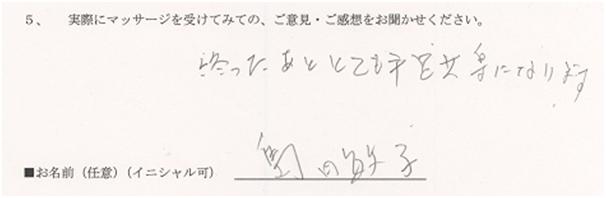 5、 実際にマッサージを受けてみての、ご意見・ご感想をお聞かせください。
終ったあととても手足共楽になります
■お名前（任意）（イニシャル可） 田 子